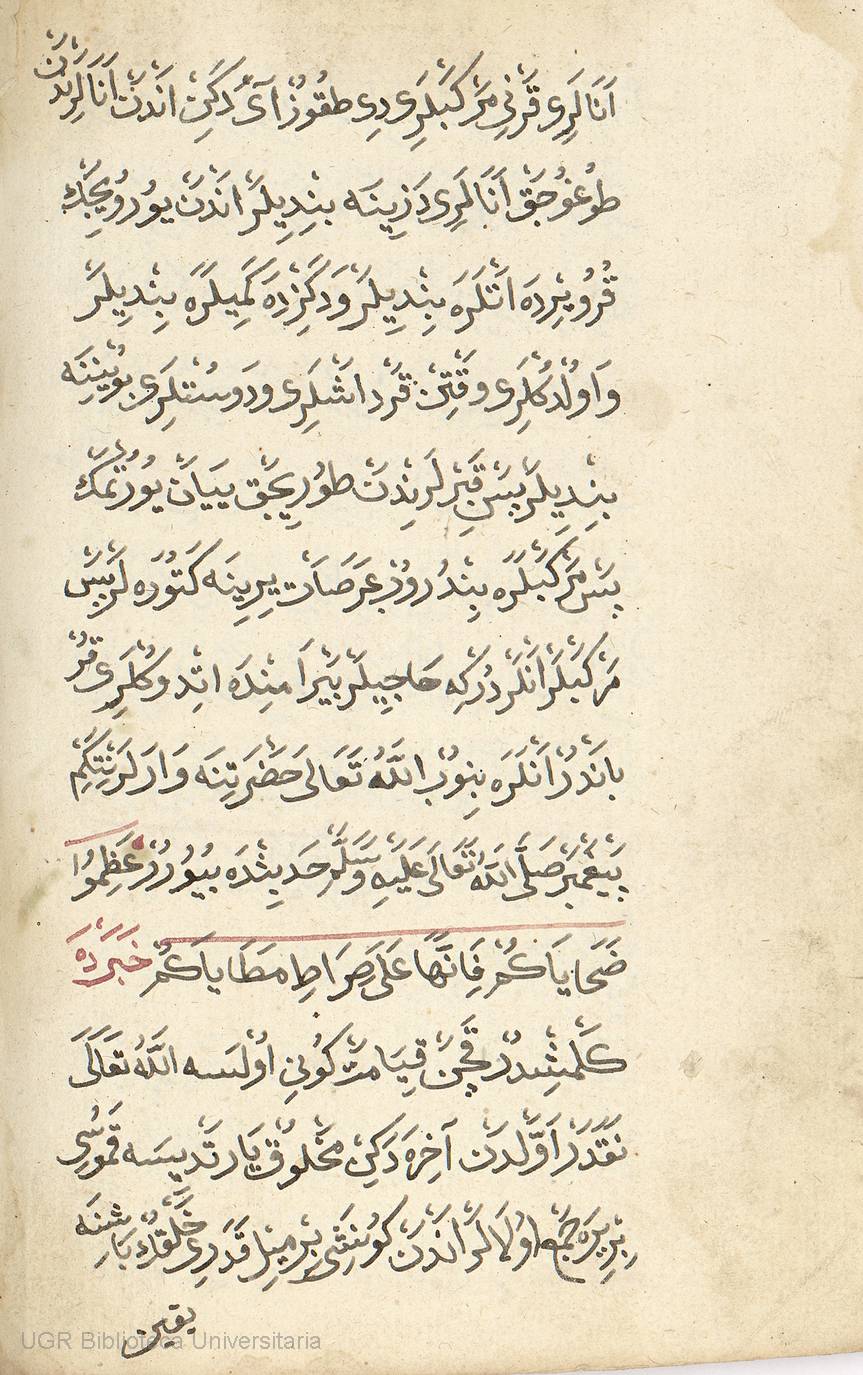 اَنَالَرِى قَرْنِى مَرْكَبْلَرِى دِى طُقُوزْ آىَ دَكِنْ اَنْدَنْ اَنَالَرِنْدَنْ
طُوغُوجَقْ اَنَالَرِى دَزِينَه بِنْدِيلَرْ اَنْدَنْ يُورُويُجَكْ
قُرُو يِرْدَه اَتْلَرَه بِنْدِيلَرْ وَدَكِزْدَه كَمِيلَرَه بِنْدِيلَرْ
وَاَولْدُكْلَرِى وَقْتِنْ قَرْدَاشْلَرِى وَدَوسْتْلَرِى بُويْنِنَه
بِنْدِيلَرْ بَسْ قَبِرْلَرِنْدَنْ طُورِيجَقْ يَيَانْ يُورُتْمَكْ
بَسْ مَرْكَبْلَرَه بِنْدُرُوزْ عَرَصَاتْ يِرِينَه كَتُورَه لَرْ بَسْ
مَرْكَبْلَرْ اَنْلَرْدُرْكِه حَاجِيلَرْ بَيْرَامِنْدَه اتِدوكْلَرِى قُرْ
بانَدُرْ اَنْلَرَه بِنُوبْ اللَّهُ تَعَالَى حَضْرَتِنَه وَارَلَرْ نِتَكِمْ
بَيْغَمْبَرْ صَلَّى اللَّهُ تَعَالَى عَلَيْهِ وَسَلَّمْ حَدِيثِدَه بُيُورُرْ عَظِّمُوا
ضَحَايَاكُمْ فَاِنَّهَا عَلَى صِرَاطِ مَطَايَاكُمْ خَبَرْدَه
كَلْمِشْدُرْ قَچَنْ قِيَامَتْ كُونِى اُولْسَه اللَّهُ تَعَالَى
نَقَدَرْ اَوَّلْدَنْ آخِرَه دَكِنْ مَخْلُوقْ يَارَتْدِيسَه قَمُوسِى
بِرْ يِرَه جَمْع اُولَالَرْ اَنْدَنْ كُونَشِى بِرْ مِيلْ قَدَرِى خَلْقُكْ بَاشِنَه
يقين
UGR Biblioteca Universitaria